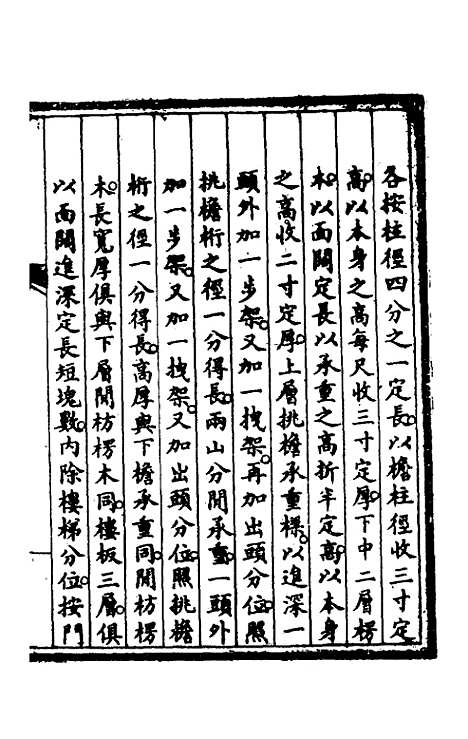 各按柱徑四分之一定長以檐柱徑收三寸定
高以本身之高每尺收三寸定厚下中二層楞
木以面闊定長以承重之高折半定高以本身
之高收二寸定厚上層挑檐承重樑以進深一
頭外加一步架又加一拽架再加出頭分位照
挑檐桁之徑一分得長兩山分間承重一頭外
加一步架又加一拽架又加出頭分位照挑檐
桁之徑一分得長高厚與下檐承重同間枋楞
木長寬厚俱與下層間枋楞木同樓板三層俱
以面闊進深定長短塊數內除樓梯分位按門